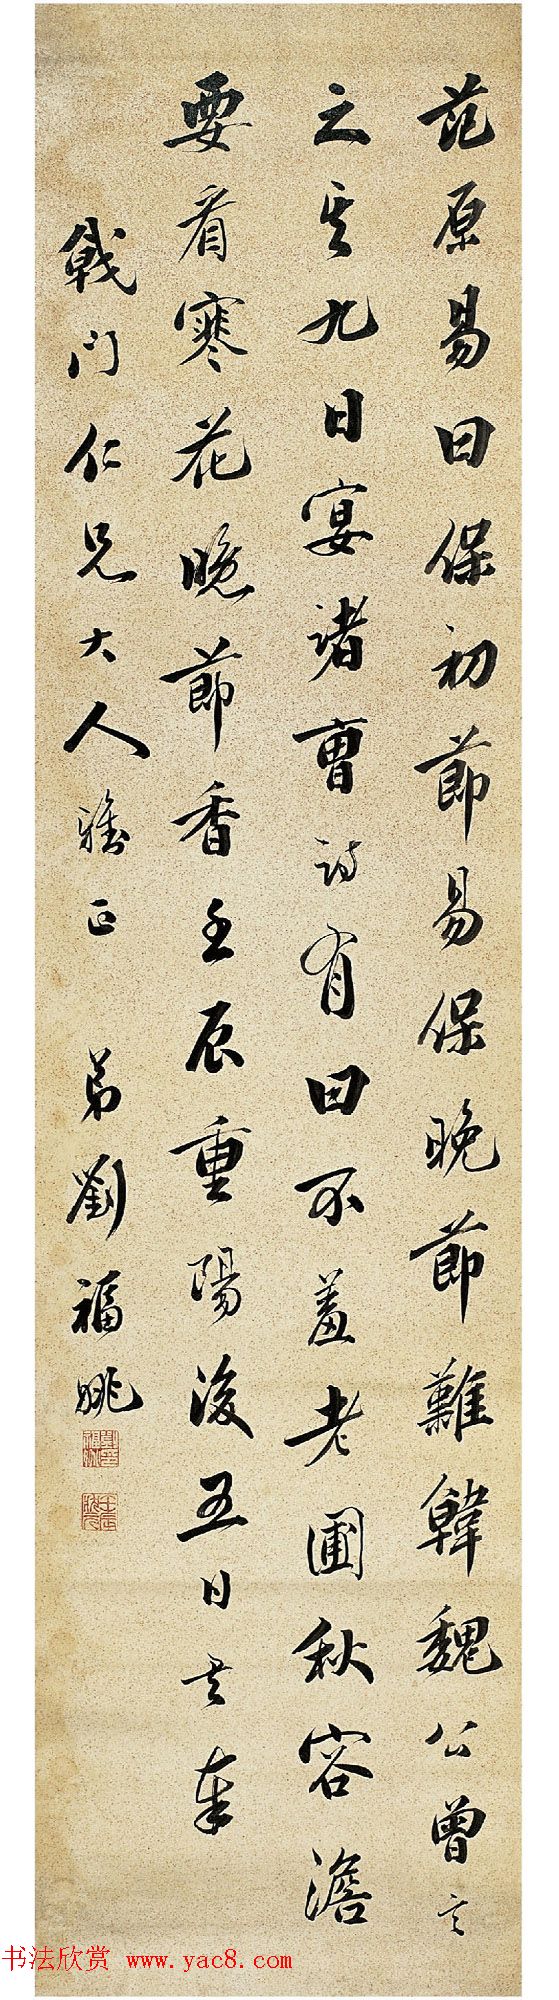 范原易曰保初節易保晚節難韓魏公曾言
之其九日宴諸曹詩有曰不羞老圃秋容澹
要看寒花晚節香壬辰重陽後五日書奉
戟門仁兄大人雅正 弟劉福姚
书法欣赏 www.yac8.com